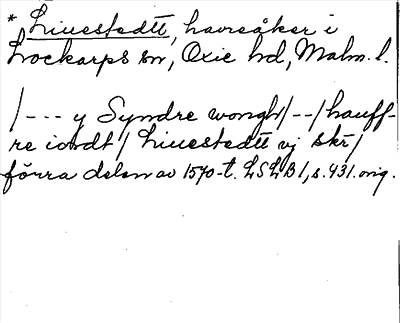 * Liuestedtt, havreåker i
Lockarps sn, Oxie hd, Malm. l.
/--- y Syndre wongh/--/hauff-
re iordt/ Liuestedtt vj skr/
förra delen av 1570-t. LSLB 1, s. 431. orig.